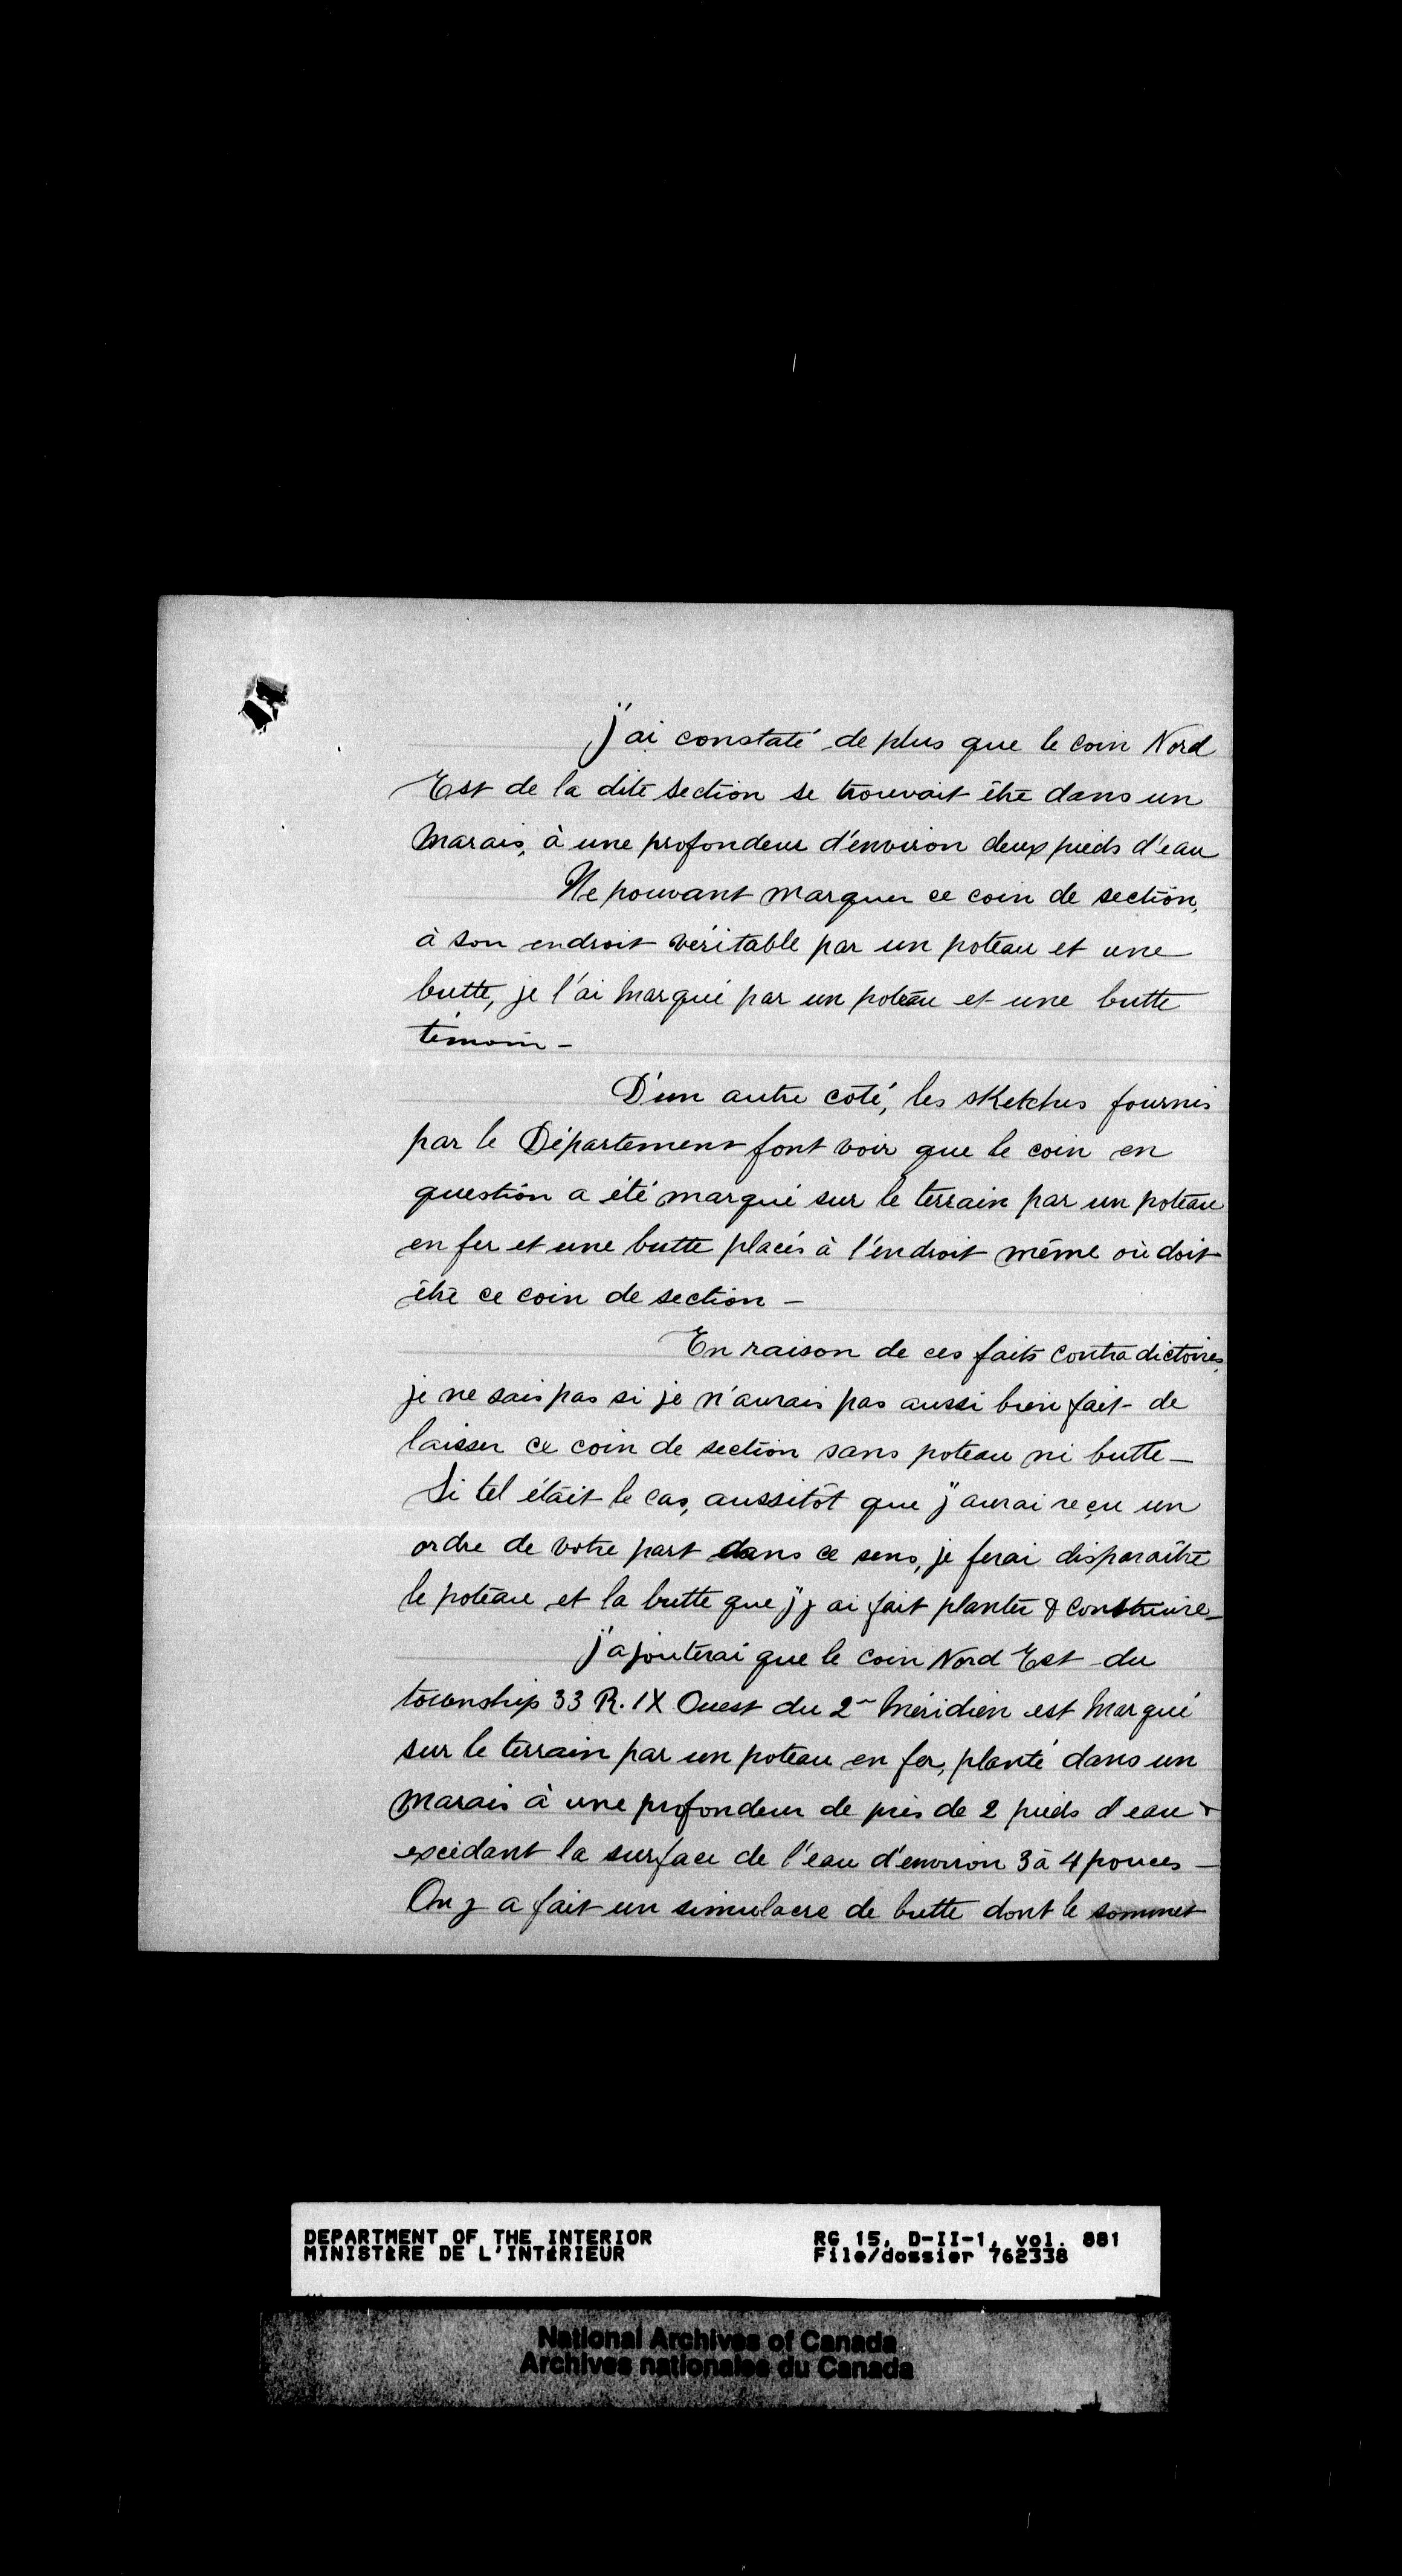 j'ai constaté de plus que le coin Nord
Est de la dite section se trouvait être dans un
marais, à une profondeur d'environ deux pieds d'eau
Ne pouvant marquer ce coin de section,
à son endroit véritable par un poteau et une
butte, je l'ai marqué par un poteau et une butte
témoin –
D'un autre côté, les sketches fournis
par le Département font voir que le coin en
question a été marqué sur le terrain par un poteau
en fer et une butte placés à l'endroit même où doit
être ce coin de section –
En raison de ces faits contradictoires,
je ne sais pas si je n'aurais pas aussi bien fait de
laisser ce coin de section sans poteau ni butte –
Si tel était le cas, aussitôt que j'aurai reçu un
ordre de votre part dans ce sens, je ferai disparaître
le poteau et la butte que j'y ai fait planter & construire –
j'ajouterai que le coin Nord Est du
township 33 R. IX Ouest du 2e méridien est marqué
sur le terrain par un poteau en fer, planté dans un
marais à une profondeur de près de 2 pieds d'eau &
excédant la surface de l'eau d'environ 3 à 4 pouces –
On y a fait un simulacre de butte dont le sommet
DEPARTMENT OF THE INTERIOR RG 15, D-II-1, vol. 881
MINISTÈRE DE L'INTÉRIEUR File/dossier 762338
National Archives of Canada
Archives nationales du Canada